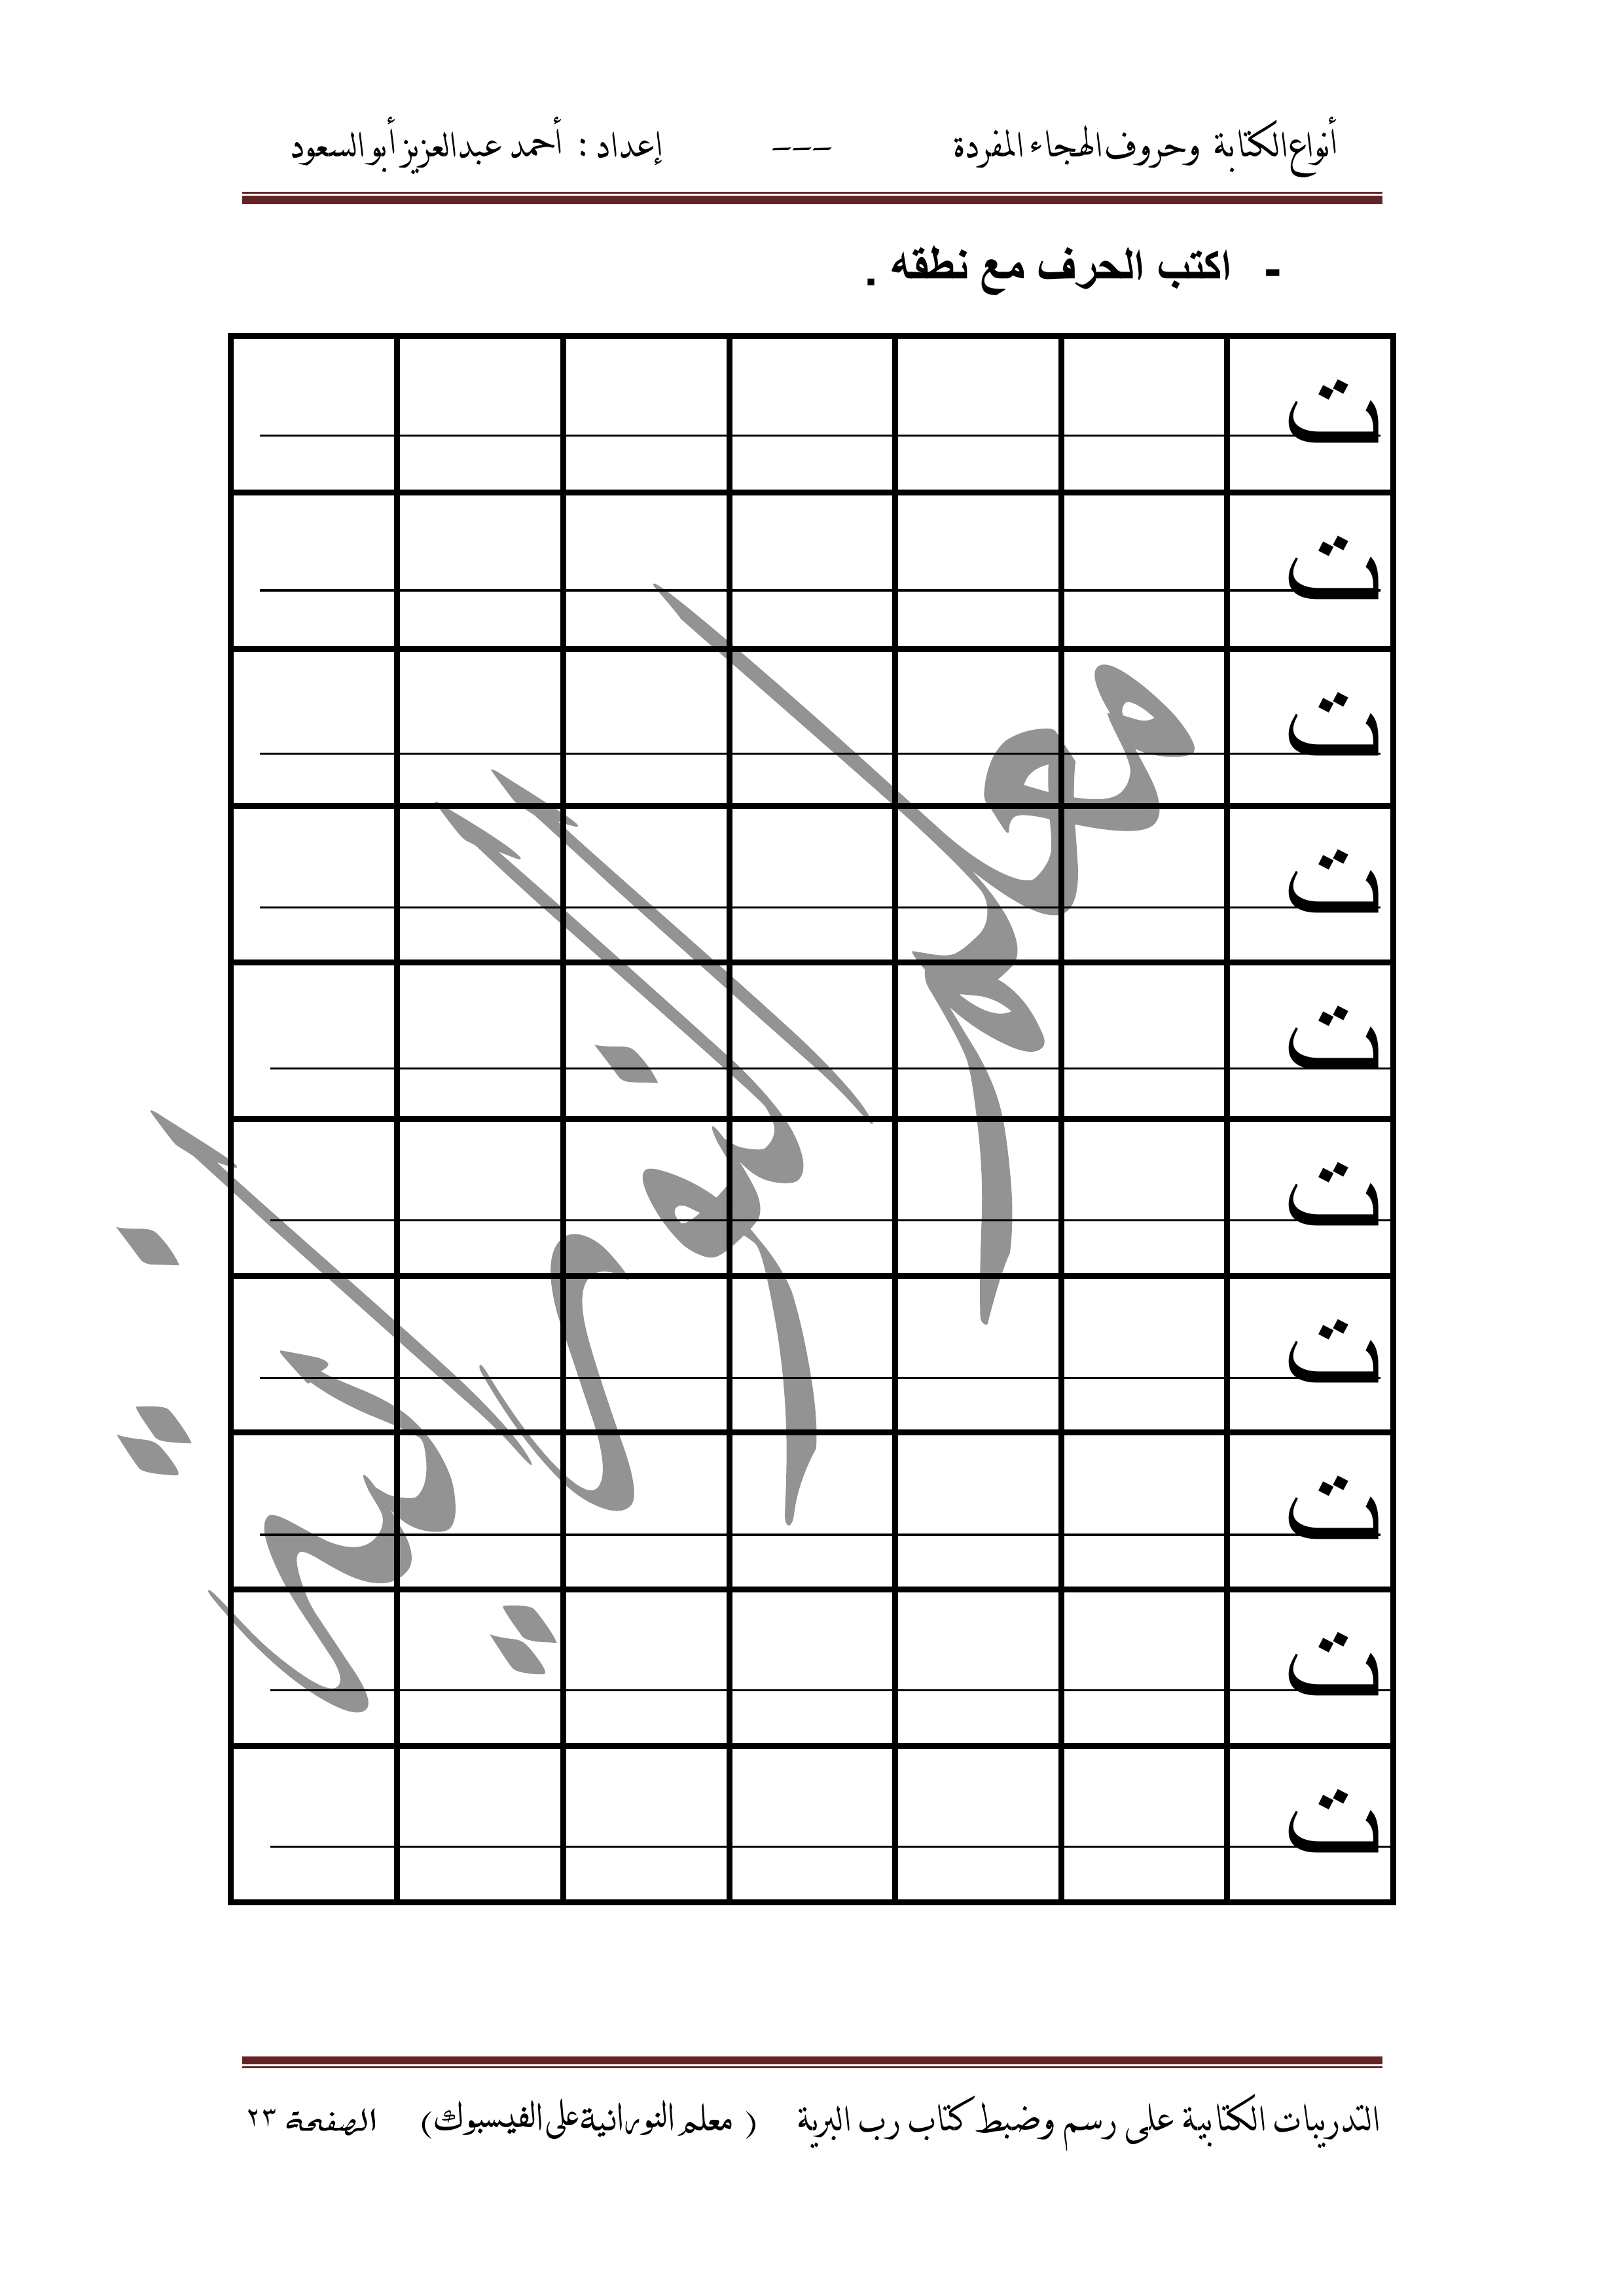 أنواع الكتابة وحروف الهجاء المفردة --- إعداد : أحمد عبدالعزيز أبو السعود
- اكتب الحرف مع نطقه .
ت
ت
ت
ت
ت
ت
ت
ت
ت
ت
معلم النورانية
التدريبات الكتابية على رسم وضبط كتاب رب البرية ( معلم النورانية على الفيسبوك ) الصفحة ٢٣